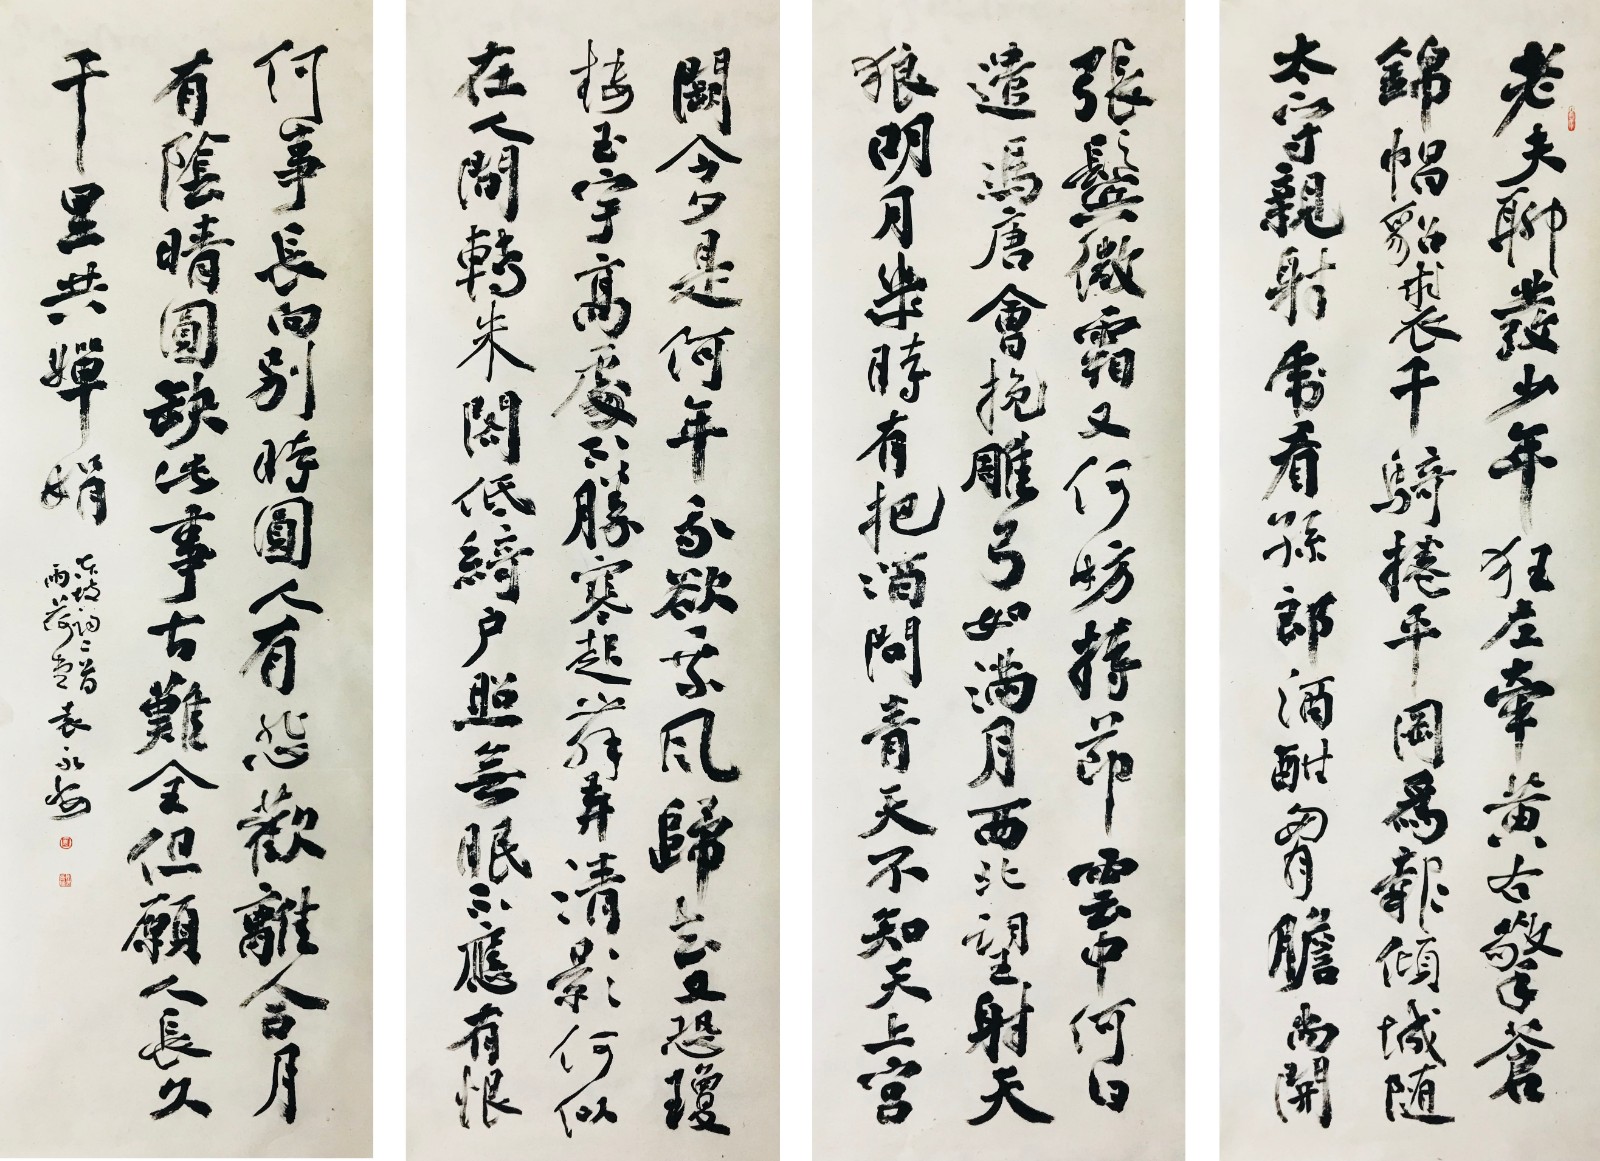 老夫聊發少年狂左牽黃右擎蒼
錦帽貂裘千騎捲平岡為報傾城随
太守親射虎看孫郎酒酣胷膽尚開
張鬢微霜又何妨持節雲中何日
遣馮唐會挽雕弓如滿月西北望射天
狼明月幾時有把酒問青天不知天上宮
闕今夕是何年我欲乘風歸去又恐瓊
樓玉宇高處不勝寒起舞弄清影何似
在人間轉朱閣低綺户照無眠不應有恨
何事長向別時圓人有悲歡離合月
有陰晴圓缺此事古難全但願人長久
千里共嬋娟
東坡詞二首
雨荷堂袁永